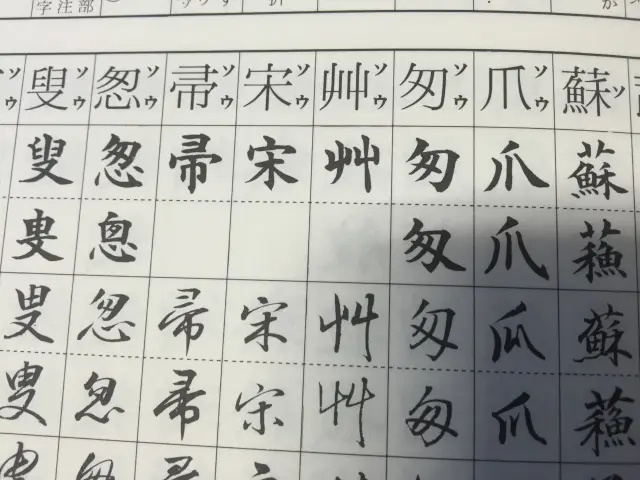 蘇ソ 蘇 蘓 蘇 蘓
爪ソウ 爪 爪 爪 爪
匆ソウ 匆 匆 匆 匆
艸ソウ 艸 艸 艸
宋ソウ 宋 宋 宋
帚ソウ 帚 帚 帚
怱ソウ 怱 怱 怱
叟ソウ 叟 叟 叟